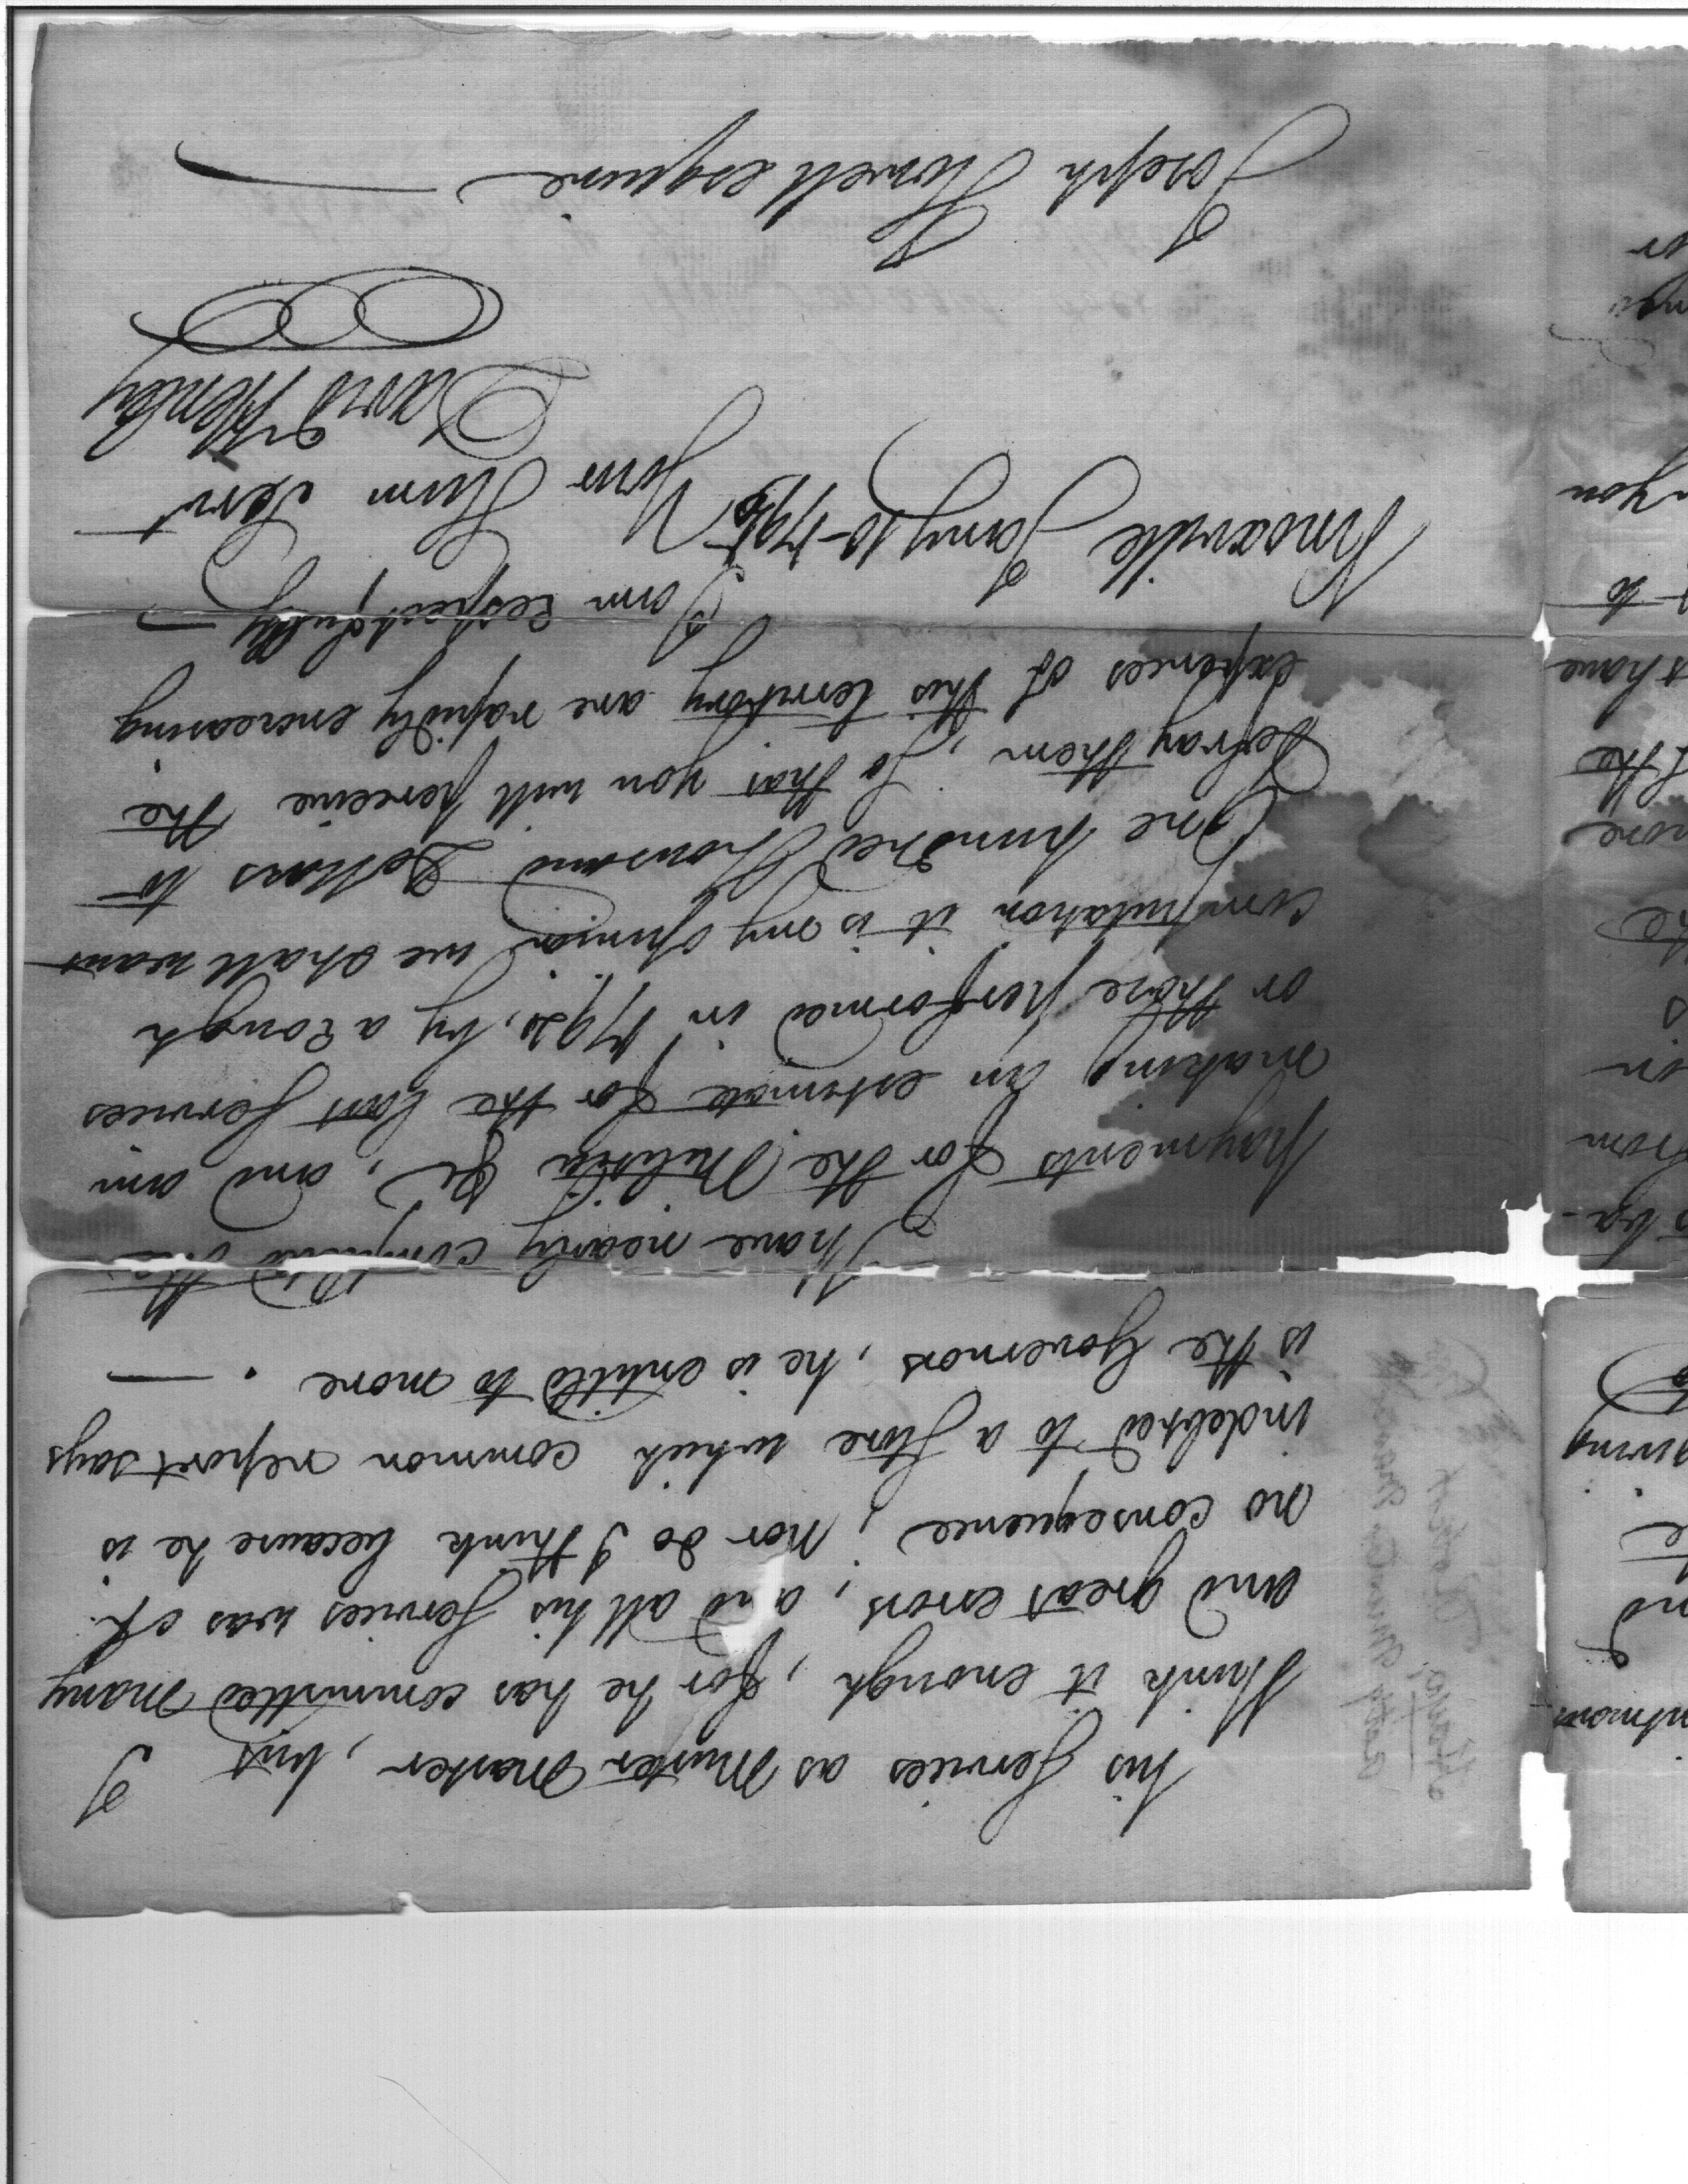 his Services as Muster Master, but I
think it enough, for he has committed many
and great errors, and all his Services was of
no consequence, nor do I think because he is
indebted to a Store which common report says
is the Governors, he is entitled to more.
I have nearly compleated the
payments for the Militia &c, and am
making an estimate for the last Services
or those performed in 1794, by a rough
computation it is my Opinion we shall want
One hundred thousand Dollars to
defray them, So that you will perceive the
expences of this territory are rapidly encreasing
I am respectfully
Your Hum Servt
David Henley
Knoxville Jany 10 - 1795
Joseph Howell esquire